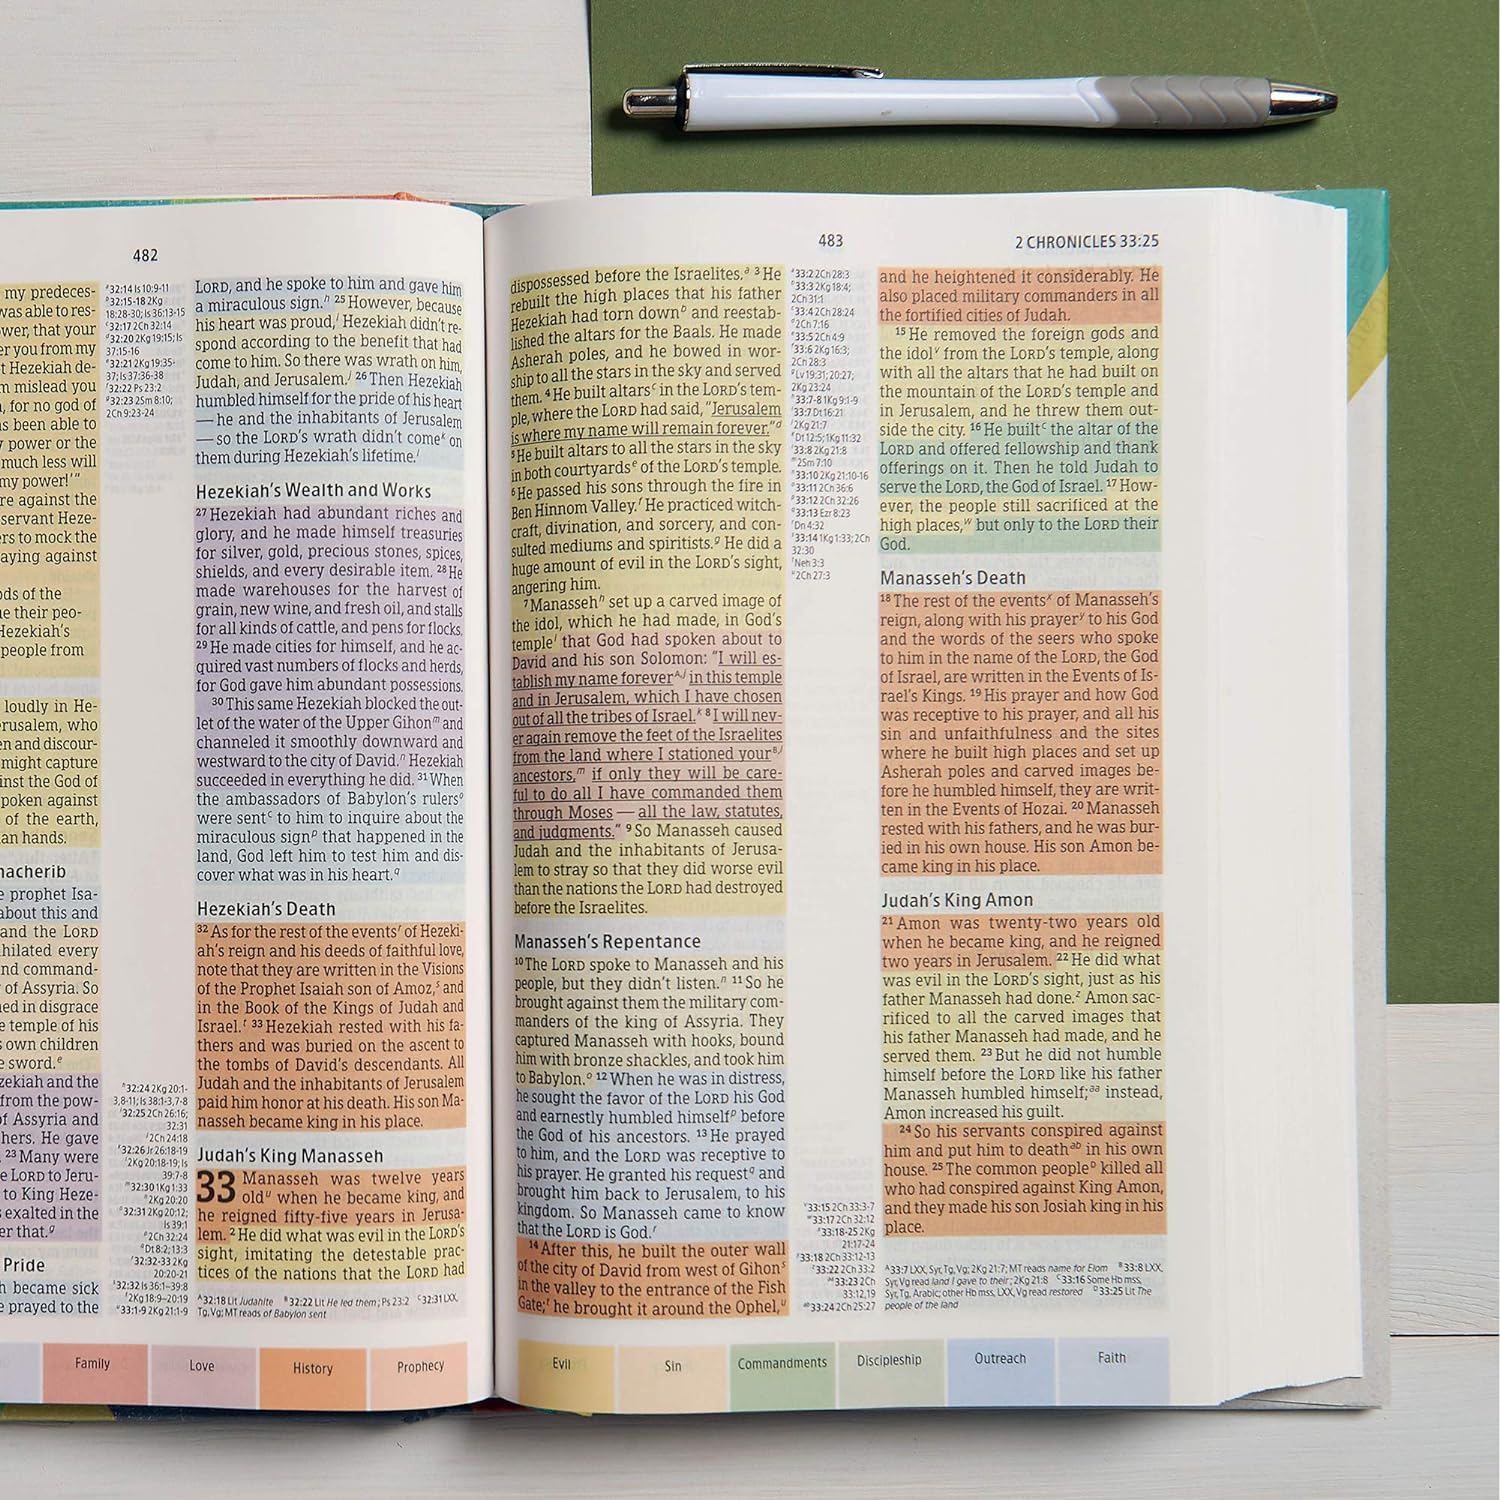 482
my predeces-
was able to res-
wer, that your
er you from my
t Hezekiah de-
m mislead you
, for no god of
s been able to
y power or the
much less will
my power!’”
re against the
servant Heze-
rs to mock the
aying against
ods of the
e their peo-
Hezekiah’s
people from
loudly in He-
erusalem, who
en and discour-
might capture
inst the God of
poken against
of the earth,
an hands.
nacherib
e prophet Isa-
about this and
and the LORD
hilated every
nd command-
of Assyria. So
ned in disgrace
e temple of his
s own children
e sword.e
zekiah and the
from the pow-
f Assyria and
hers. He gave
. 23 Many were
e LORD to Jeru-
to King Heze-
s exalted in the
er that.g
Pride
h became sick
e prayed to the
32:14 Is 10:9-11
32:15-18 2Kg
18:28-30; Is 36:13-15
32:17 2Ch 32:14
32:20 2Kg 19:15; Is
37:15-16
32:21 2Kg 19:35-
37; Is 37:36-38
32:22 Ps 23:2
32:23 2Sm 8:10;
2Ch 9:23-24
32:24 2Kg 20:1-
3,8-11; Is 38:1-3,7-8
32:25 2Ch 26:16;
32:31
2Ch 24:18
32:26 Jr 26:18-19
2Kg 20:18-19; Is
39:7-8
32:30 1Kg 1:33
2Kg 20:20
32:31 2Kg 20:12;
Is 39:1
2Ch 32:24
Dt 8:2; 13:3
32:32-33 2Kg
20:20-21
32:32 Is 36:1–39:8
2Kg 18:9–20:19
33:1-9 2Kg 21:1-9
LORD, and he spoke to him and gave him
a miraculous sign.h 25 However, because
his heart was proud,i Hezekiah didn’t re-
spond according to the benefit that had
come to him. So there was wrath on him,
Judah, and Jerusalem.j 26 Then Hezekiah
humbled himself for the pride of his heart
— he and the inhabitants of Jerusalem
— so the LORD’s wrath didn’t comek on
them during Hezekiah’s lifetime.l
Hezekiah’s Wealth and Works
27 Hezekiah had abundant riches and
glory, and he made himself treasuries
for silver, gold, precious stones, spices,
shields, and every desirable item. 28 He
made warehouses for the harvest of
grain, new wine, and fresh oil, and stalls
for all kinds of cattle, and pens for flocks.
29 He made cities for himself, and he ac-
quired vast numbers of flocks and herds,
for God gave him abundant possessions.
30 This same Hezekiah blocked the out-
let of the water of the Upper Gihonm and
channeled it smoothly downward and
westward to the city of David.n Hezekiah
succeeded in everything he did. 31 When
the ambassadors of Babylon’s rulerso
were sentC to him to inquire about the
miraculous signp that happened in the
land, God left him to test him and dis-
cover what was in his heart.q
Hezekiah’s Death
32 As for the rest of the eventsr of Hezeki-
ah’s reign and his deeds of faithful love,
note that they are written in the Visions
of the Prophet Isaiah son of Amoz,s and
in the Book of the Kings of Judah and
Israel.t 33 Hezekiah rested with his fa-
thers and was buried on the ascent to
the tombs of David’s descendants. All
Judah and the inhabitants of Jerusalem
paid him honor at his death. His son Ma-
nasseh became king in his place.
Judah’s King Manasseh
33 Manasseh was twelve years
oldu when he became king, and
he reigned fifty-five years in Jerusa-
lem. 2 He did what was evil in the LORD’s
sight, imitating the detestable prac-
tices of the nations that the LORD had
A 32:18 Lit Judahite B 32:22 Lit He led them; Ps 23:2 C 32:31 LXX,
Tg, Vg; MT reads of Babylon sent
Family
Love
History
Prophecy
483
2 CHRONICLES 33:25
dispossessed before the Israelites.a 3 He
rebuilt the high places that his father
Hezekiah had torn downb and reestab-
lished the altars for the Baals. He made
Asherah poles, and he bowed in wor-
ship to all the stars in the sky and served
them. 4 He built altarsc in the LORD’s tem-
ple, where the LORD had said, “Jerusalem
is where my name will remain forever.”d
5 He built altars to all the stars in the sky
in both courtyardse of the LORD’s temple.
6 He passed his sons through the fire in
Ben Hinnom Valley.f He practiced witch-
craft, divination, and sorcery, and con-
sulted mediums and spiritists.g He did a
huge amount of evil in the LORD’s sight,
angering him.
7 Manassehh set up a carved image of
the idol, which he had made, in God’s
templei that God had spoken about to
David and his son Solomon: “I will es-
tablish my name foreverA,j in this temple
and in Jerusalem, which I have chosen
out of all the tribes of Israel.k 8 I will nev-
er again remove the feet of the Israelites
from the land where I stationed yourB,l
ancestors,m if only they will be care-
ful to do all I have commanded them
through Moses — all the law, statutes,
and judgments.” 9 So Manasseh caused
Judah and the inhabitants of Jerusa-
lem to stray so that they did worse evil
than the nations the LORD had destroyed
before the Israelites.
Manasseh’s Repentance
10 The LORD spoke to Manasseh and his
people, but they didn’t listen.n 11 So he
brought against them the military com-
manders of the king of Assyria. They
captured Manasseh with hooks, bound
him with bronze shackles, and took him
to Babylon.o 12 When he was in distress,
he sought the favor of the LORD his God
and earnestly humbled himselfp before
the God of his ancestors. 13 He prayed
to him, and the LORD was receptive to
his prayer. He granted his requestq and
brought him back to Jerusalem, to his
kingdom. So Manasseh came to know
that the LORD is God.r
14 After this, he built the outer wall
of the city of David from west of Gihons
in the valley to the entrance of the Fish
Gate;t he brought it around the Ophel,u
33:2 2Ch 28:3
33:3 2Kg 18:4;
2Ch 31:1
33:4 2Ch 28:24
2Ch 7:16
33:5 2Ch 4:9
33:6 2Kg 16:3;
2Ch 28:3
Lv 19:31; 20:27;
2Kg 23:24
33:7-8 1Kg 9:1-9
33:7 Dt 16:21
2Kg 21:7
Dt 12:5; 1Kg 11:32
33:8 2Kg 21:8
2Sm 7:10
33:10 2Kg 21:10-16
33:11 2Ch 36:6
33:12 2Ch 32:26
33:13 Ezr 8:23
Dn 4:32
33:14 1Kg 1:33; 2Ch
32:30
Neh 3:3
2Ch 27:3
33:15 2Ch 33:3-7
33:17 2Ch 32:12
33:18-25 2Kg
21:17-24
33:18 2Ch 33:12-13
33:22 2Ch 33:2
33:23 2Ch
33:12,19
33:24 2Ch 25:27
and he heightened it considerably. He
also placed military commanders in all
the fortified cities of Judah.
15 He removed the foreign gods and
the idolv from the LORD’s temple, along
with all the altars that he had built on
the mountain of the LORD’s temple and
in Jerusalem, and he threw them out-
side the city. 16 He builtC the altar of the
LORD and offered fellowship and thank
offerings on it. Then he told Judah to
serve the LORD, the God of Israel. 17 How-
ever, the people still sacrificed at the
high places,w but only to the LORD their
God.
Manasseh’s Death
18 The rest of the eventsx of Manasseh’s
reign, along with his prayery to his God
and the words of the seers who spoke
to him in the name of the LORD, the God
of Israel, are written in the Events of Is-
rael’s Kings. 19 His prayer and how God
was receptive to his prayer, and all his
sin and unfaithfulness and the sites
where he built high places and set up
Asherah poles and carved images be-
fore he humbled himself, they are writ-
ten in the Events of Hozai. 20 Manasseh
rested with his fathers, and he was bur-
ied in his own house. His son Amon be-
came king in his place.
Judah’s King Amon
21 Amon was twenty-two years old
when he became king, and he reigned
two years in Jerusalem. 22 He did what
was evil in the LORD’s sight, just as his
father Manasseh had done.z Amon sac-
rificed to all the carved images that
his father Manasseh had made, and he
served them. 23 But he did not humble
himself before the LORD like his father
Manasseh humbled himself;aa instead,
Amon increased his guilt.
24 So his servants conspired against
him and put him to deathab in his own
house. 25 The common peopleD killed all
who had conspired against King Amon,
and they made his son Josiah king in his
place.
A 33:7 LXX, Syr, Tg, Vg; 2Kg 21:7; MT reads name for Elom B 33:8 LXX,
Syr, Vg read land I gave to their; 2Kg 21:8 C 33:16 Some Hb mss,
Syr, Tg, Arabic; other Hb mss, LXX, Vg read restored D 33:25 Lit The
people of the land
Evil
Sin
Commandments
Discipleship
Outreach
Faith